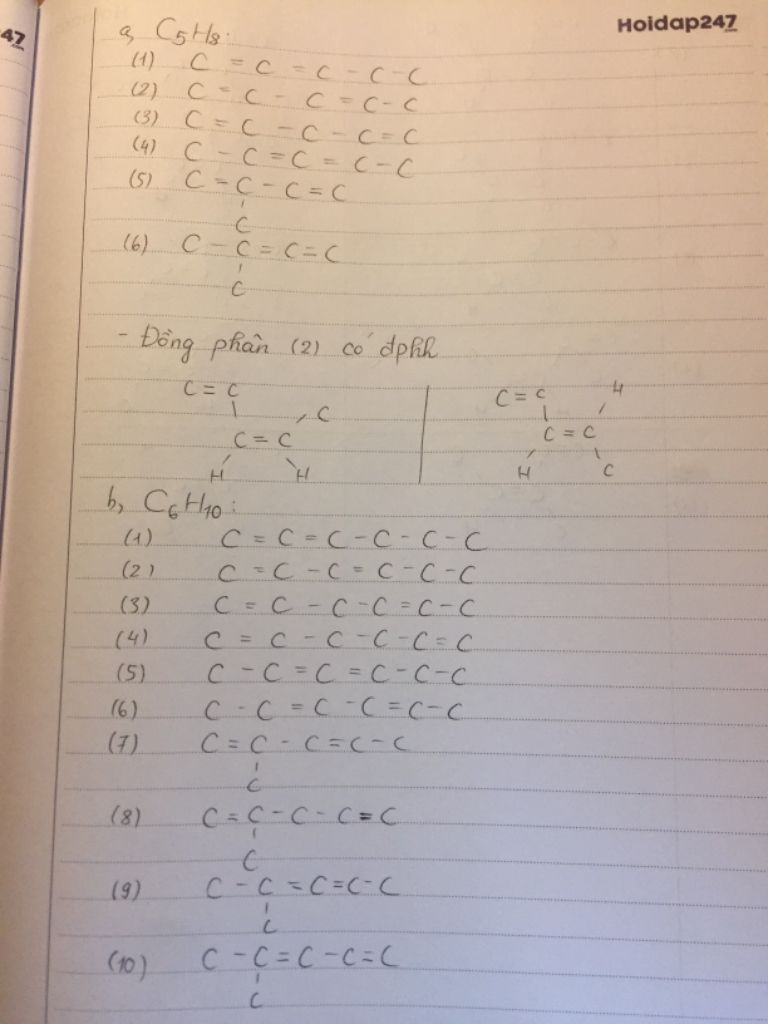 47
Hoidap247
a, C5H8:
(1) C = C = C - C - C
(2) C = C - C = C - C
(3) C = C - C - C = C
(4) C - C = C = C - C
(5) C = C - C = C
C
(6) C - C = C = C
C
- Đồng phân (2) có đphh
C = C C = C H
C
C = C C = C
H H H C
b, C6H10:
(1) C = C = C - C - C - C
(2) C = C - C = C - C - C
(3) C = C - C - C = C - C
(4) C = C - C - C - C = C
(5) C - C = C = C - C - C
(6) C - C = C - C = C - C
(7) C = C - C = C - C
C
(8) C = C - C - C = C
C
(9) C - C = C = C - C
C
(10) C - C = C - C = C
C